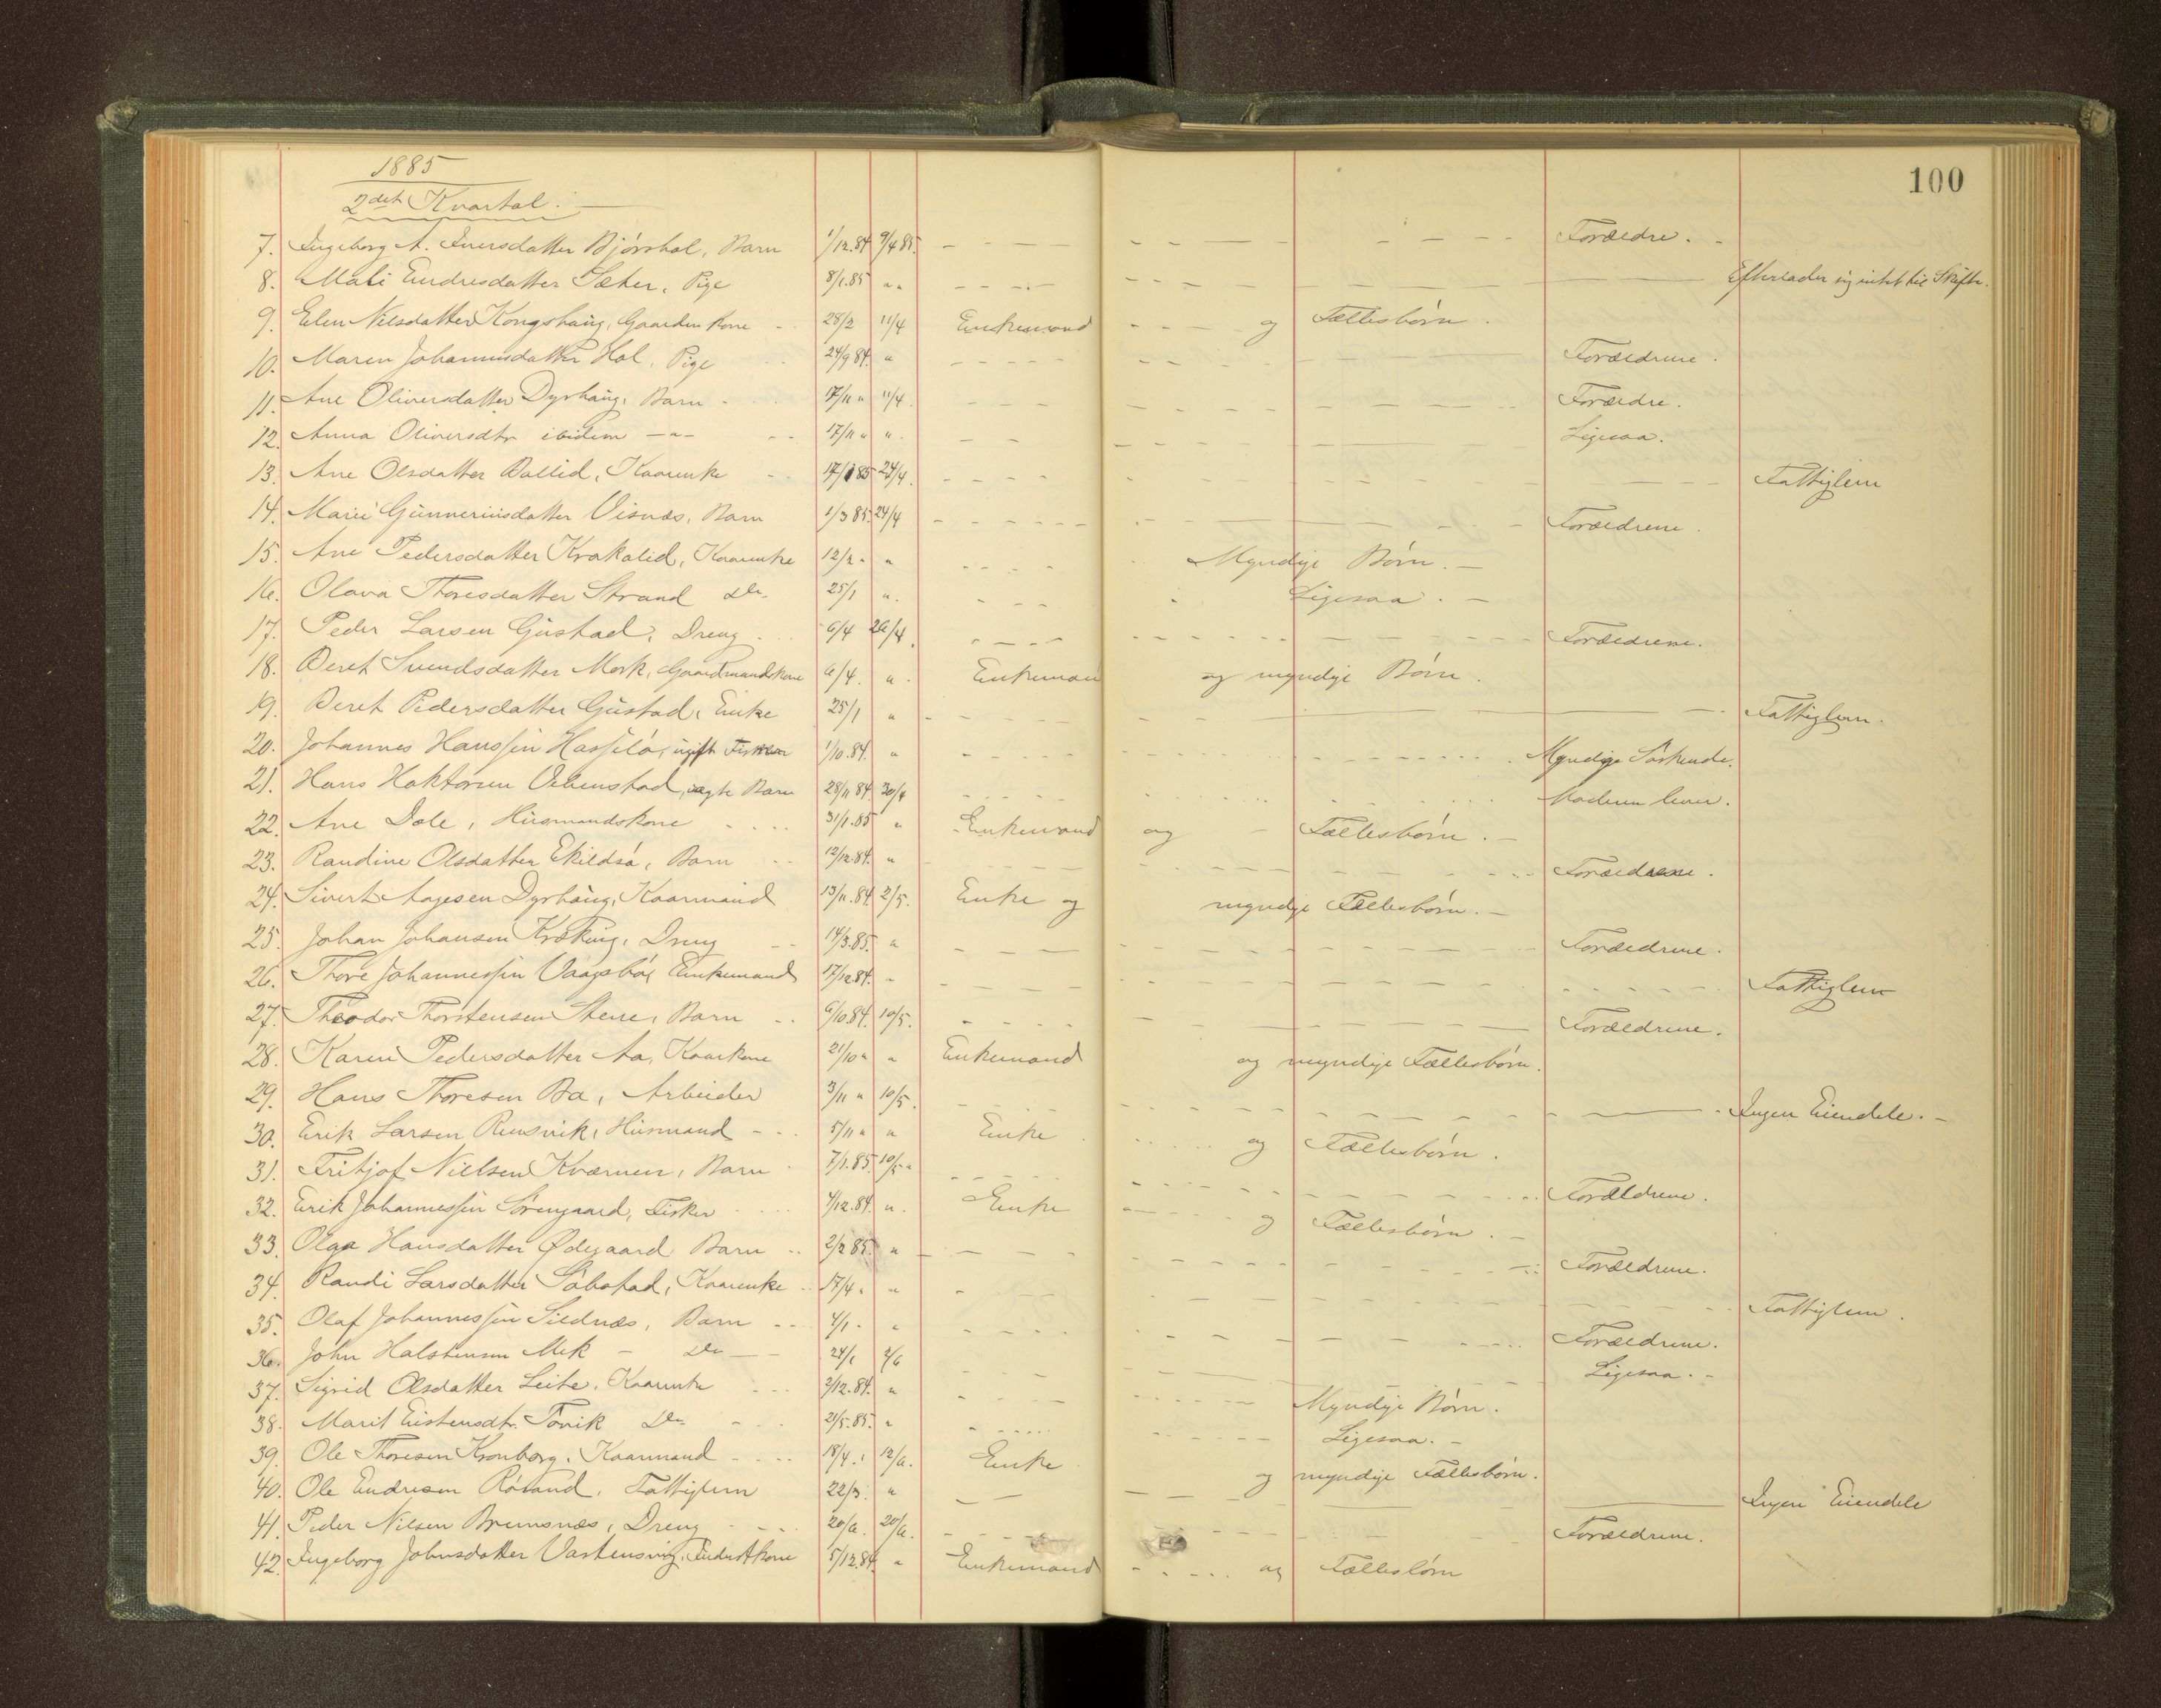 1885
100
2det Kvartal.
7. Ingeborg A. Iversdatter Bjørshol, Barn 1/12.84 9/4 85. Forældre.
8. Mali Endresdatter Sæter, Pige 8/1.85 " Efterlader sig intet til Skifte.
9. Elen Nilsdatter Kongshaug, Gaardm. Kone 28/2 11/4 Enkemand og Fællesbørn.
10. Maren Johannesdatter Hol, Pige 24/9 84. " Forældrene.
11. Ane Oliversdatter Dyrhaug, Barn 17/11 " 11/4. Forældre.
12. Anna Oliversdtr ibidem -"- 17/11 " ". Ligesaa.
13. Ane Olsdatter Dallid, Kaarenke 17/1 85 24/4. Fattiglem
14. Marie Gunneriusdatter Visnæs, Barn 1/3 85. 24/4 Forældrene.
15. Ane Pedersdatter Krakalid, Kaarenke 12/2 " " Myndige Børn.
16. Olava Thoresdatter Strand Do. 25/1 ". Ligesaa.
17. Peder Larsen Gustad, Dreng. 6/4 26/4. Forældrene.
18. Beret Svendsdatter Mork, Gaardmandskone 6/4. ". Enkeman og myndige Børn.
19. Beret Pedersdatter Gustad, Enke 25/1 " Fattiglem.
20. Johannes Hanssen Hasselø, ugift Fisker 1/10.84. " Myndige Søskende.
21. Hans Haktorsen Vebenstad, uægte Barn 28/11 84. 30/4 Moderen lever.
22. Ane Dale, Husmandskone 31/1.85 " Enkemand og Fællesbørn.
23. Randine Olsdatter Ekildsø, Barn 12/12.84. " Forældrene.
24. Sivert Aagesen Dyrhaug, Kaarmand 13/11.84. 2/5. Enke og myndige Fællesbørn.
25. Johan Johansen Kræking, Dreng 14/3.85. " Forældrene.
26. Thore Johannessen Vaagsbø, Enkemand 17/12 84. " Fattiglem
27. Theodor Thorstensen Stene, Barn 6/10.84. 10/5. Forældrene.
28. Karen Pedersdatter Aa, Kaarkone 21/10 " " Enkemand og myndige Fællesbørn.
29. Hans Thoresen Bø, Arbeider 3/11 " 10/5. Ingen Eiendele.
30. Erik Larsen Rensvik, Husmand 5/11 " " Enke og Fællesbørn.
31. Fritjof Nielsen Kværnen, Barn 7/1.85. 10/5 " Forældrene.
32. Erik Johannessen Sørengaard, Fisker 4/12.84. ". Enke og Fællesbørn.
33. Olga Hansdatter Ødegaard Barn 2/2 85. " Forældrene.
34. Randi Larsdatter Søbstad, Kaarenke 17/4. " Fattiglem.
35. Olaf Johannessen Sildnæs, Barn 4/1. " Forældrene.
36. John Halstensen Mek Do 24/1 2/6 Ligesaa.
37. Sigrid Olsdatter Leite, Kaarenke 2/12.84. " Myndige Børn.
38. Marit Eistensdtr. Tøvik Do 21/5.85. " Ligesaa.
39. Ole Thoresen Kronborg, Kaarmand 18/4. " 12/6. Enke og myndige Fællesbørn.
40. Ole Endresen Røsand, Fattiglem 22/3. " Ingen Eiendele
41. Peder Nilsen Bremsnæs, Dreng 20/6. 20/6. Forældrene.
42. Ingeborg Johnsdatter Vastensvig, Inderstkone 5/12.84. " Enkemand og Fællesbørn